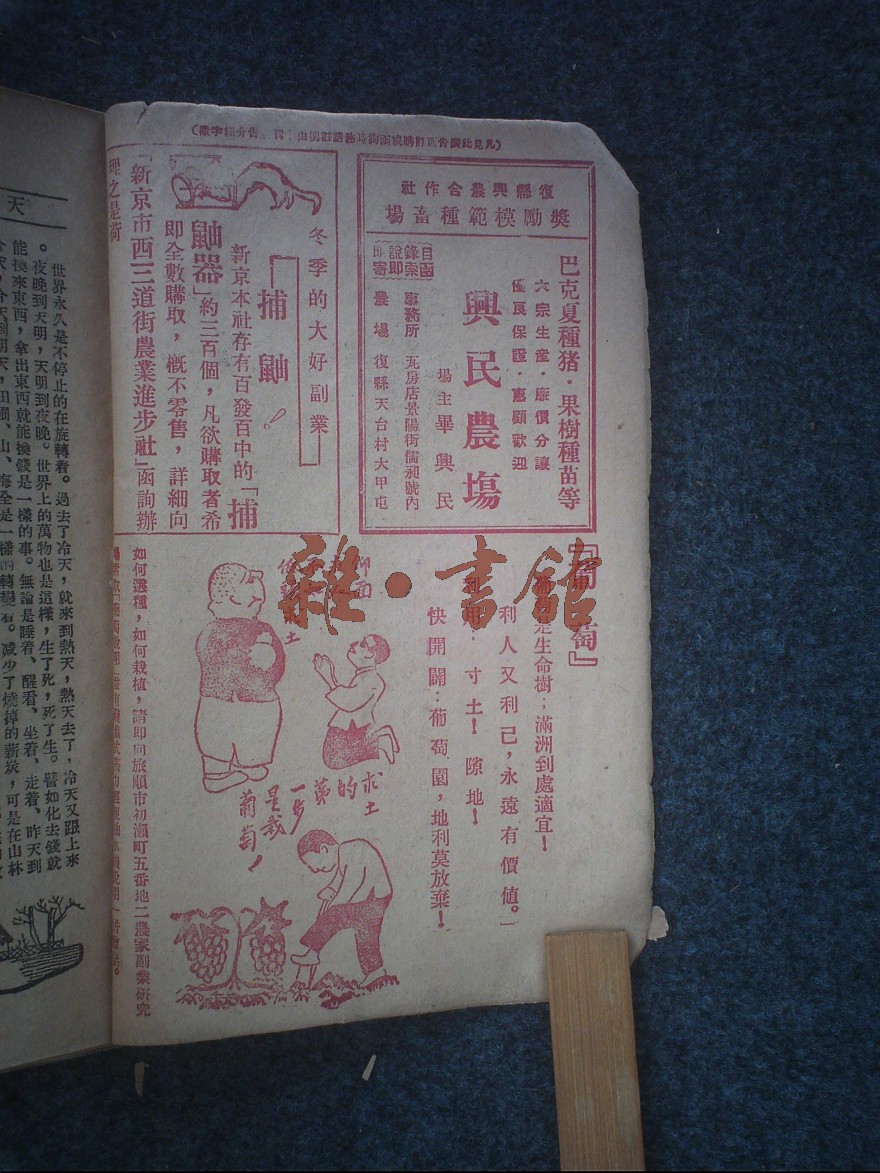 復縣興農合作社
獎勵模範種畜場
巴克夏種猪・果樹種苗等
六宗生產・廉價分讓
優良保證・惠顧歡迎
興民農場
場主畢興民
目錄函索
說即郵寄
事務所 瓦房店景陽街儒昶號內
農場 復縣天台村大甲屯
冬季的大好副業
捕鼬！
新京本社存有百發百中的「捕
鼬器」約三百個，凡欲購取者希
即全數購取，概不零售，詳細向
「新京市西三道街農業進步社」函詢辦
理之是荷
葡萄是生命樹；滿洲到處適宜！
利人又利己，永遠有價值。
寸土！隙地！
快開闢：葡萄園，地利莫放棄！
求土
的第
一步
是栽
葡萄！
如何選種，如何栽植，請即向旅順市初瀨町五番地二農家副業研究
雜・書館
天
世界永久是不停止的在旋轉着。過去了冷天，就來到熱天，熱天去了，冷天又跟上來
。夜晚到天明，天明到夜晚。世界上的萬物也是這樣，生了死，死了生。譬如化去錢就
能換來東西，拿出東西就能換錢是一樣的事。無論是睡着、醒着、坐着、走着、昨天到